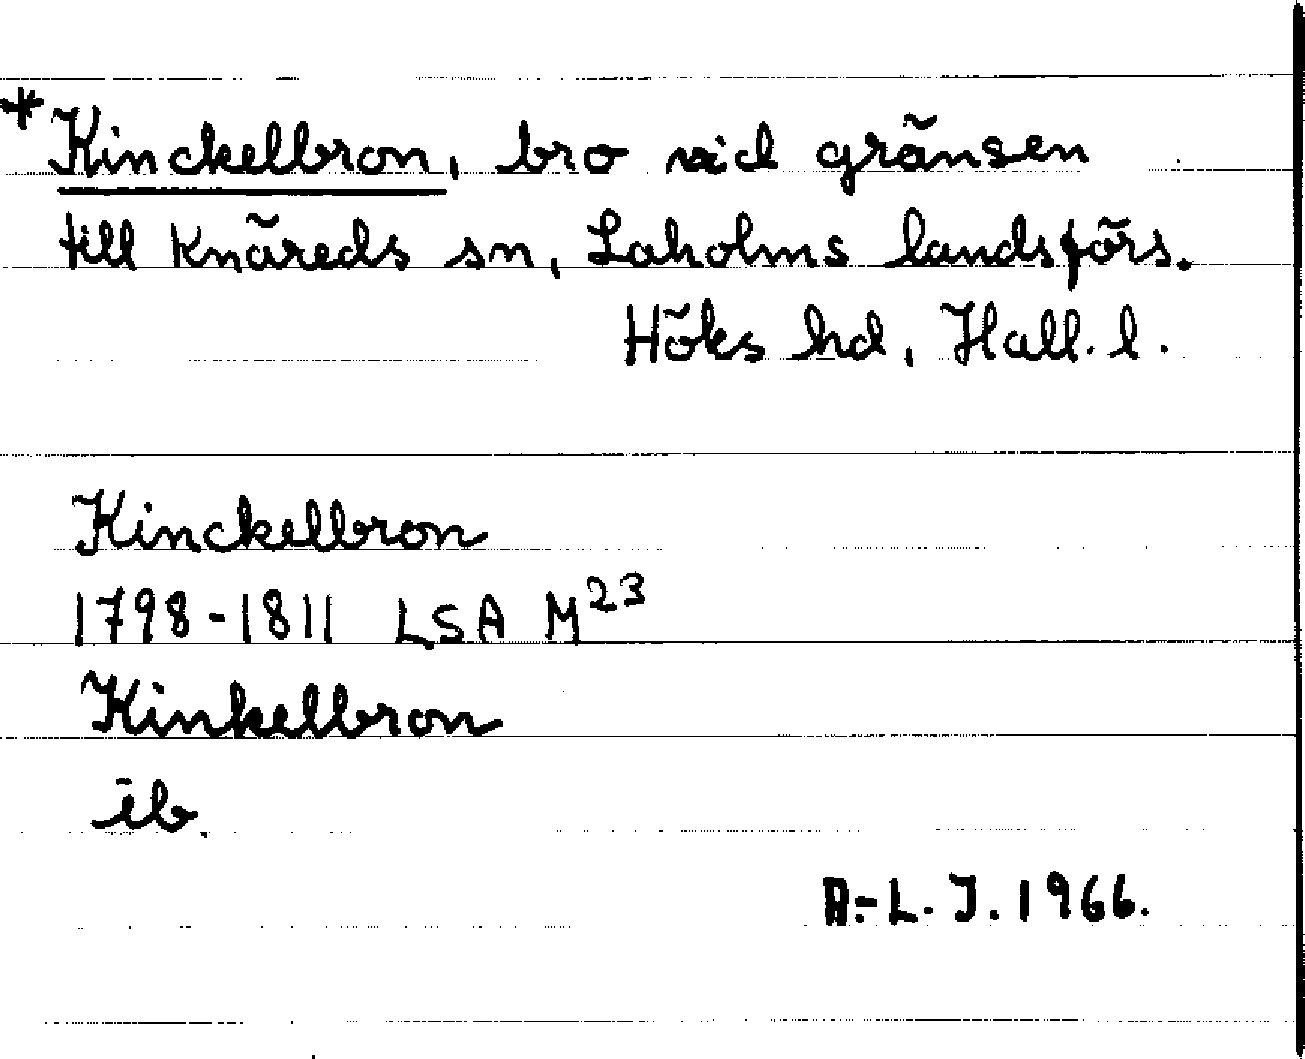 *Kinckelbron, bro vid gränsen
till Knäreds sn, Laholms landsförs.
Höks hd, Hall. l.
Kinckelbron
1798-1811 LSA M23
Kinkelbron
ib.
A.-L. J. 1966.